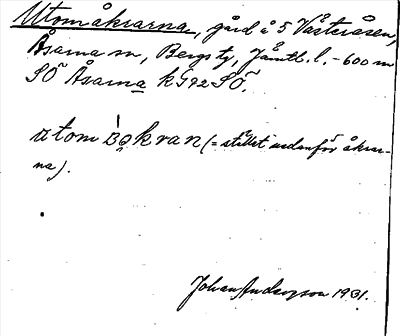 Utomåkrarna, gård å 5 Västeråsen,
Åsarna sn, Bergs tg, Jämtl. l. - 600 m
SÖ Åsarna k G92 SÖ.
utom åkran (= stället nedanför åkrar-
na).
Johan Anderson 1931.